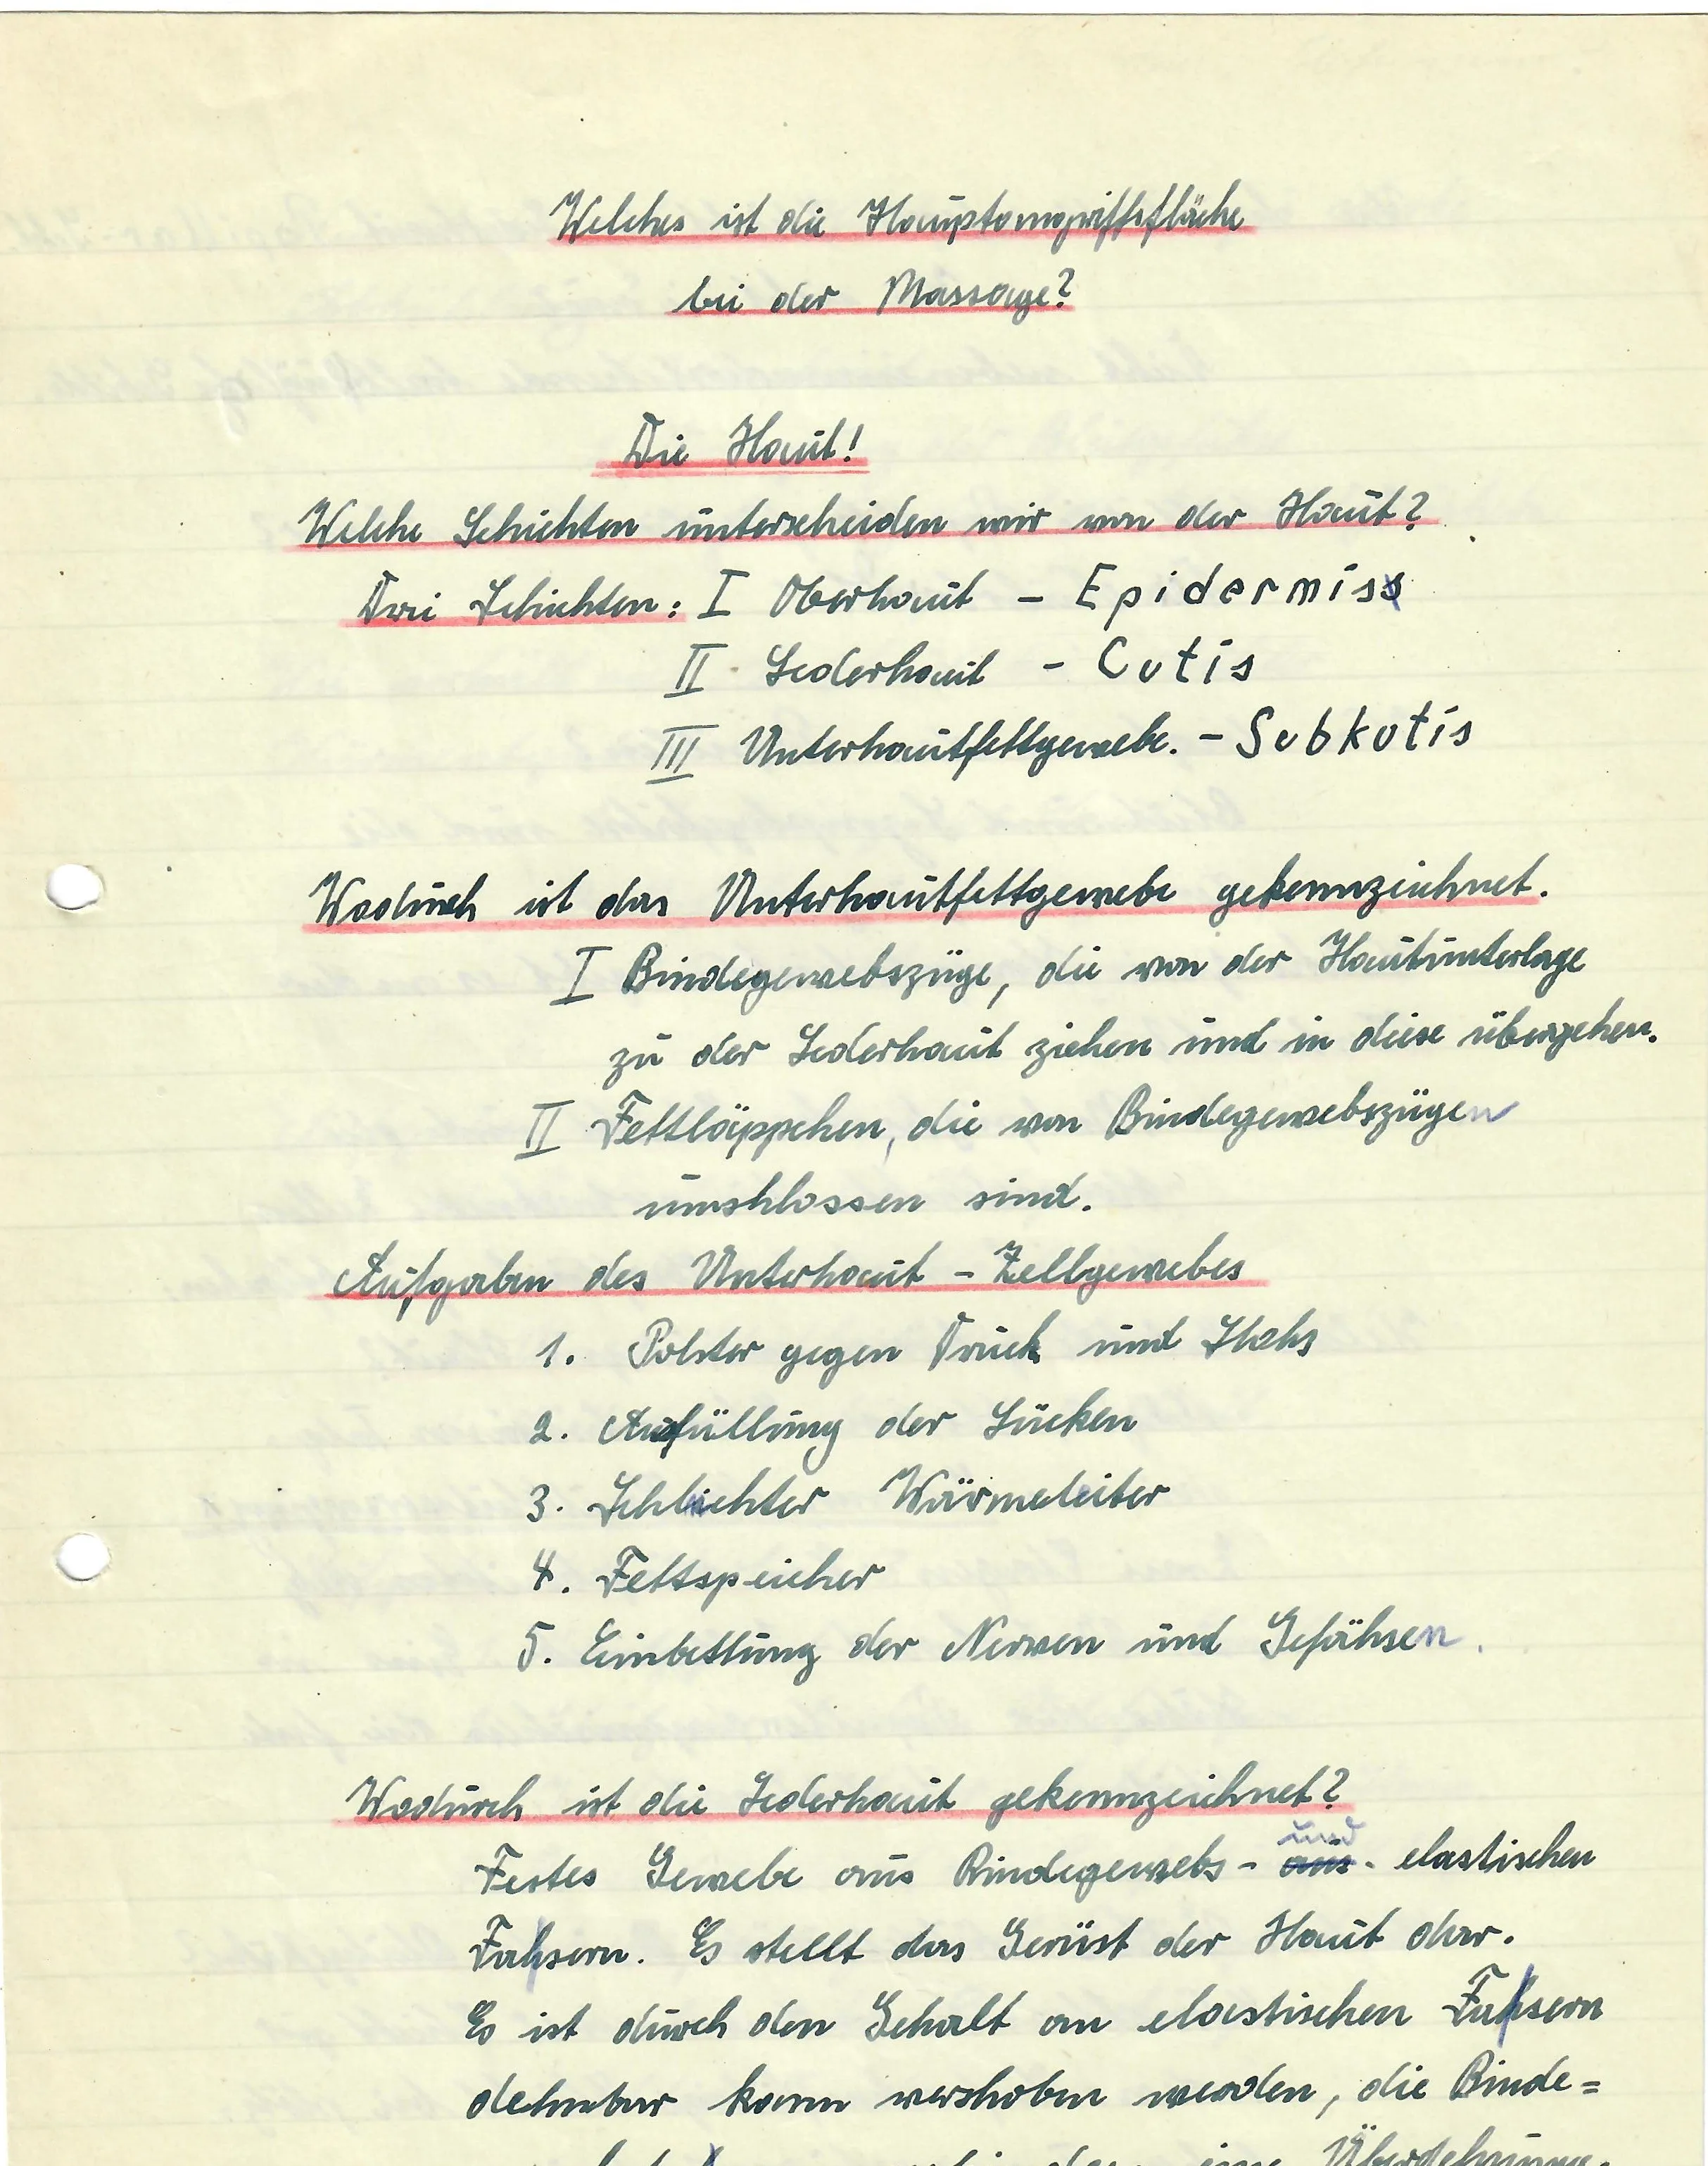 Welches ist die Hauptangriffsfläche
bei der Massage?
Die Haut!
Welche Schichten unterscheiden wir von der Haut?
Drei Schichten: I Oberhaut – Epidermis
II Lederhaut – Cutis
III Unterhautfettgewebe. – Subkutis
Wodurch ist das Unterhautfettgewebe gekennzeichnet.
I Bindegewebszüge, die von der Hautunterlage
zu der Lederhaut ziehen und in diese übergehen.
II Fettläppchen, die von Bindegewebszügen
umshlossen sind.
Aufgaben des Unterhaut – Zellgewebes
1. Polster gegen Druck und Stohs
2. Ausfüllung der Lücken
3. Schlechter Wärmeleiter
4. Fettspeicher
5. Einbettung der Nerven und Gefähsen.
Wodurch ist die Lederhaut gekennzeichnet?
Festes Gewebe aus Bindegewebs- und - elastischen
Fahsern. Es stellt das Gerüst der Haut dar.
Es ist durch den Gehalt an elastischen Fahsern
dehnbar kann vershoben werden, die Binde=
eine Überdehnung.